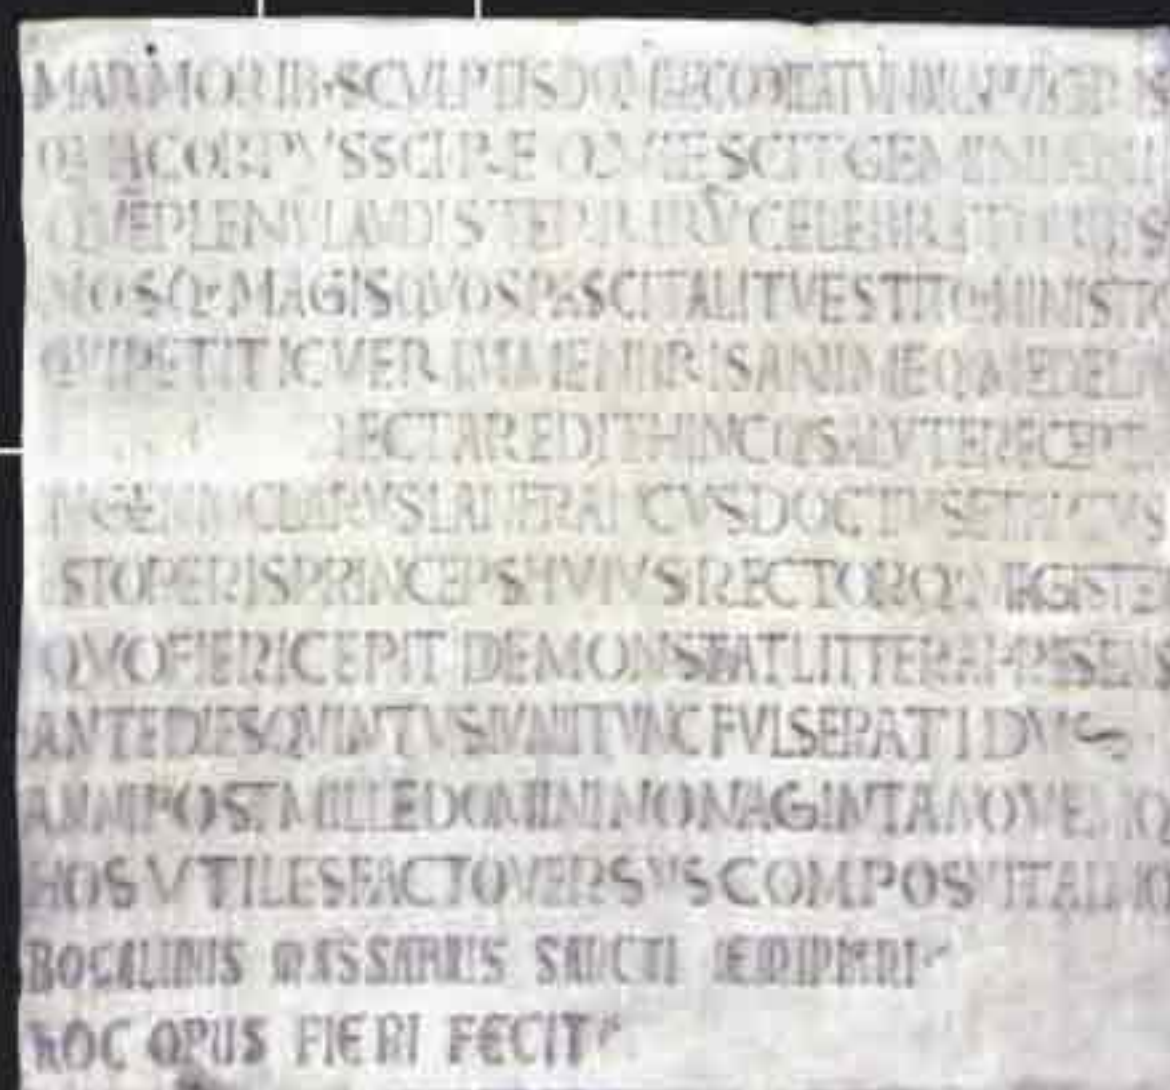 MARMORIB SCVLPTIS DOM HEC
QVA CORPVS SCI REQVIESCIT GEMINIANI
QVE PLENV LAVDIS TERRARV CELEBRAT
NOSQ MAGIS QVOS PASCIT ALIT VESTITQ MINISTR
QVI PETIT IC VERAM MEMBRIS ANIMEQ MEDELA
RECTA REDIT HINCQ SALVTE RECEPTA
INGENIO CLARVS LANFRANCVS DOCTVS ET APTVS
EST OPERIS PRINCEPS HVIVS RECTORQ MAGISTER
QVO FIERI CEPIT DEMONSTRAT LITTERA PRESENS
ANTE DIES QVINTVS IVNII TVNC FVLSERAT IDVS
ANNI POST MILLE DOMINI NONAGINTA NOVEMQ
HOS VTILES FACTO VERSVS COMPOSVIT AIMO
BOCALINUS MASSARIUS SANCTI IEMINIANI
HOC OPUS FIERI FECIT